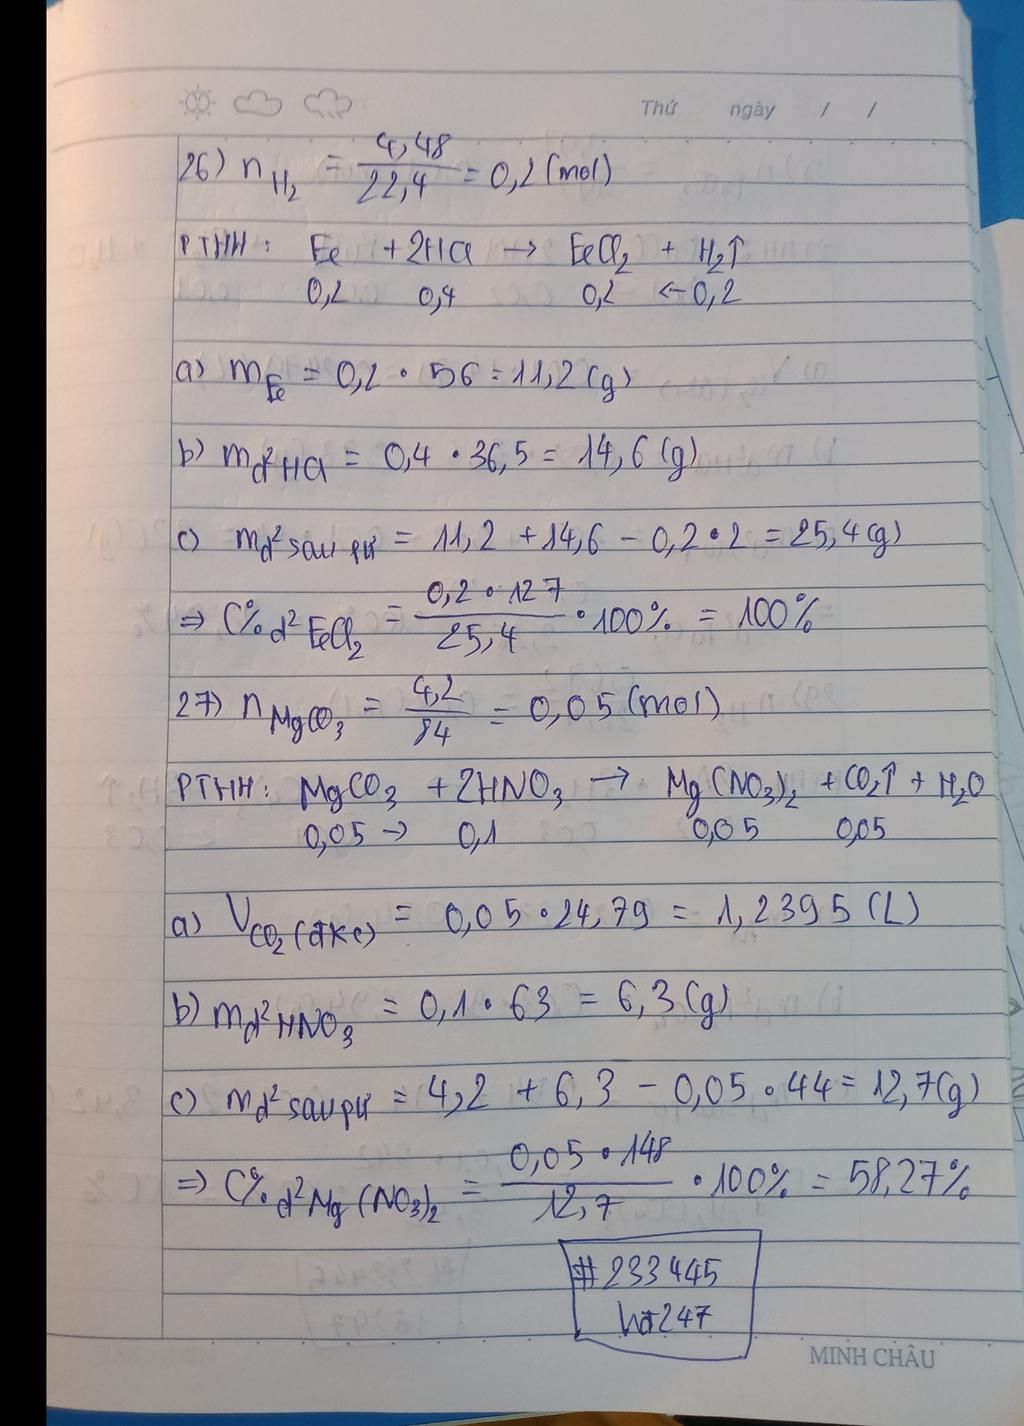 Thứ ngày / /
26) n H₂ = 4,48/22,4 = 0,2 (mol)
PTHH: Fe + 2HCl → FeCl₂ + H₂↑
0,2 0,4 0,2 ← 0,2
a) m Fe = 0,2 • 56 = 11,2 (g)
b) m d² HCl = 0,4 • 36,5 = 14,6 (g)
c) m d² sau pứ = 11,2 + 14,6 - 0,2 • 2 = 25,4 (g)
⇒ C% d² FeCl₂ = 0,2 • 127/25,4 • 100% = 100%
27) n MgCO₃ = 4,2/84 = 0,05 (mol)
PTHH: MgCO₃ + 2HNO₃ → Mg(NO₃)₂ + CO₂↑ + H₂O
0,05 → 0,1 0,05 0,05
a) V CO₂ (đkc) = 0,05 • 24,79 = 1,2395 (L)
b) m d² HNO₃ = 0,1 • 63 = 6,3 (g)
c) m d² sau pứ = 4,2 + 6,3 - 0,05 • 44 = 12,7 (g)
⇒ C% d² Mg(NO₃)₂ = 0,05 • 148/12,7 • 100% = 58,27%
#233445
hđ247
MINH CHÂU